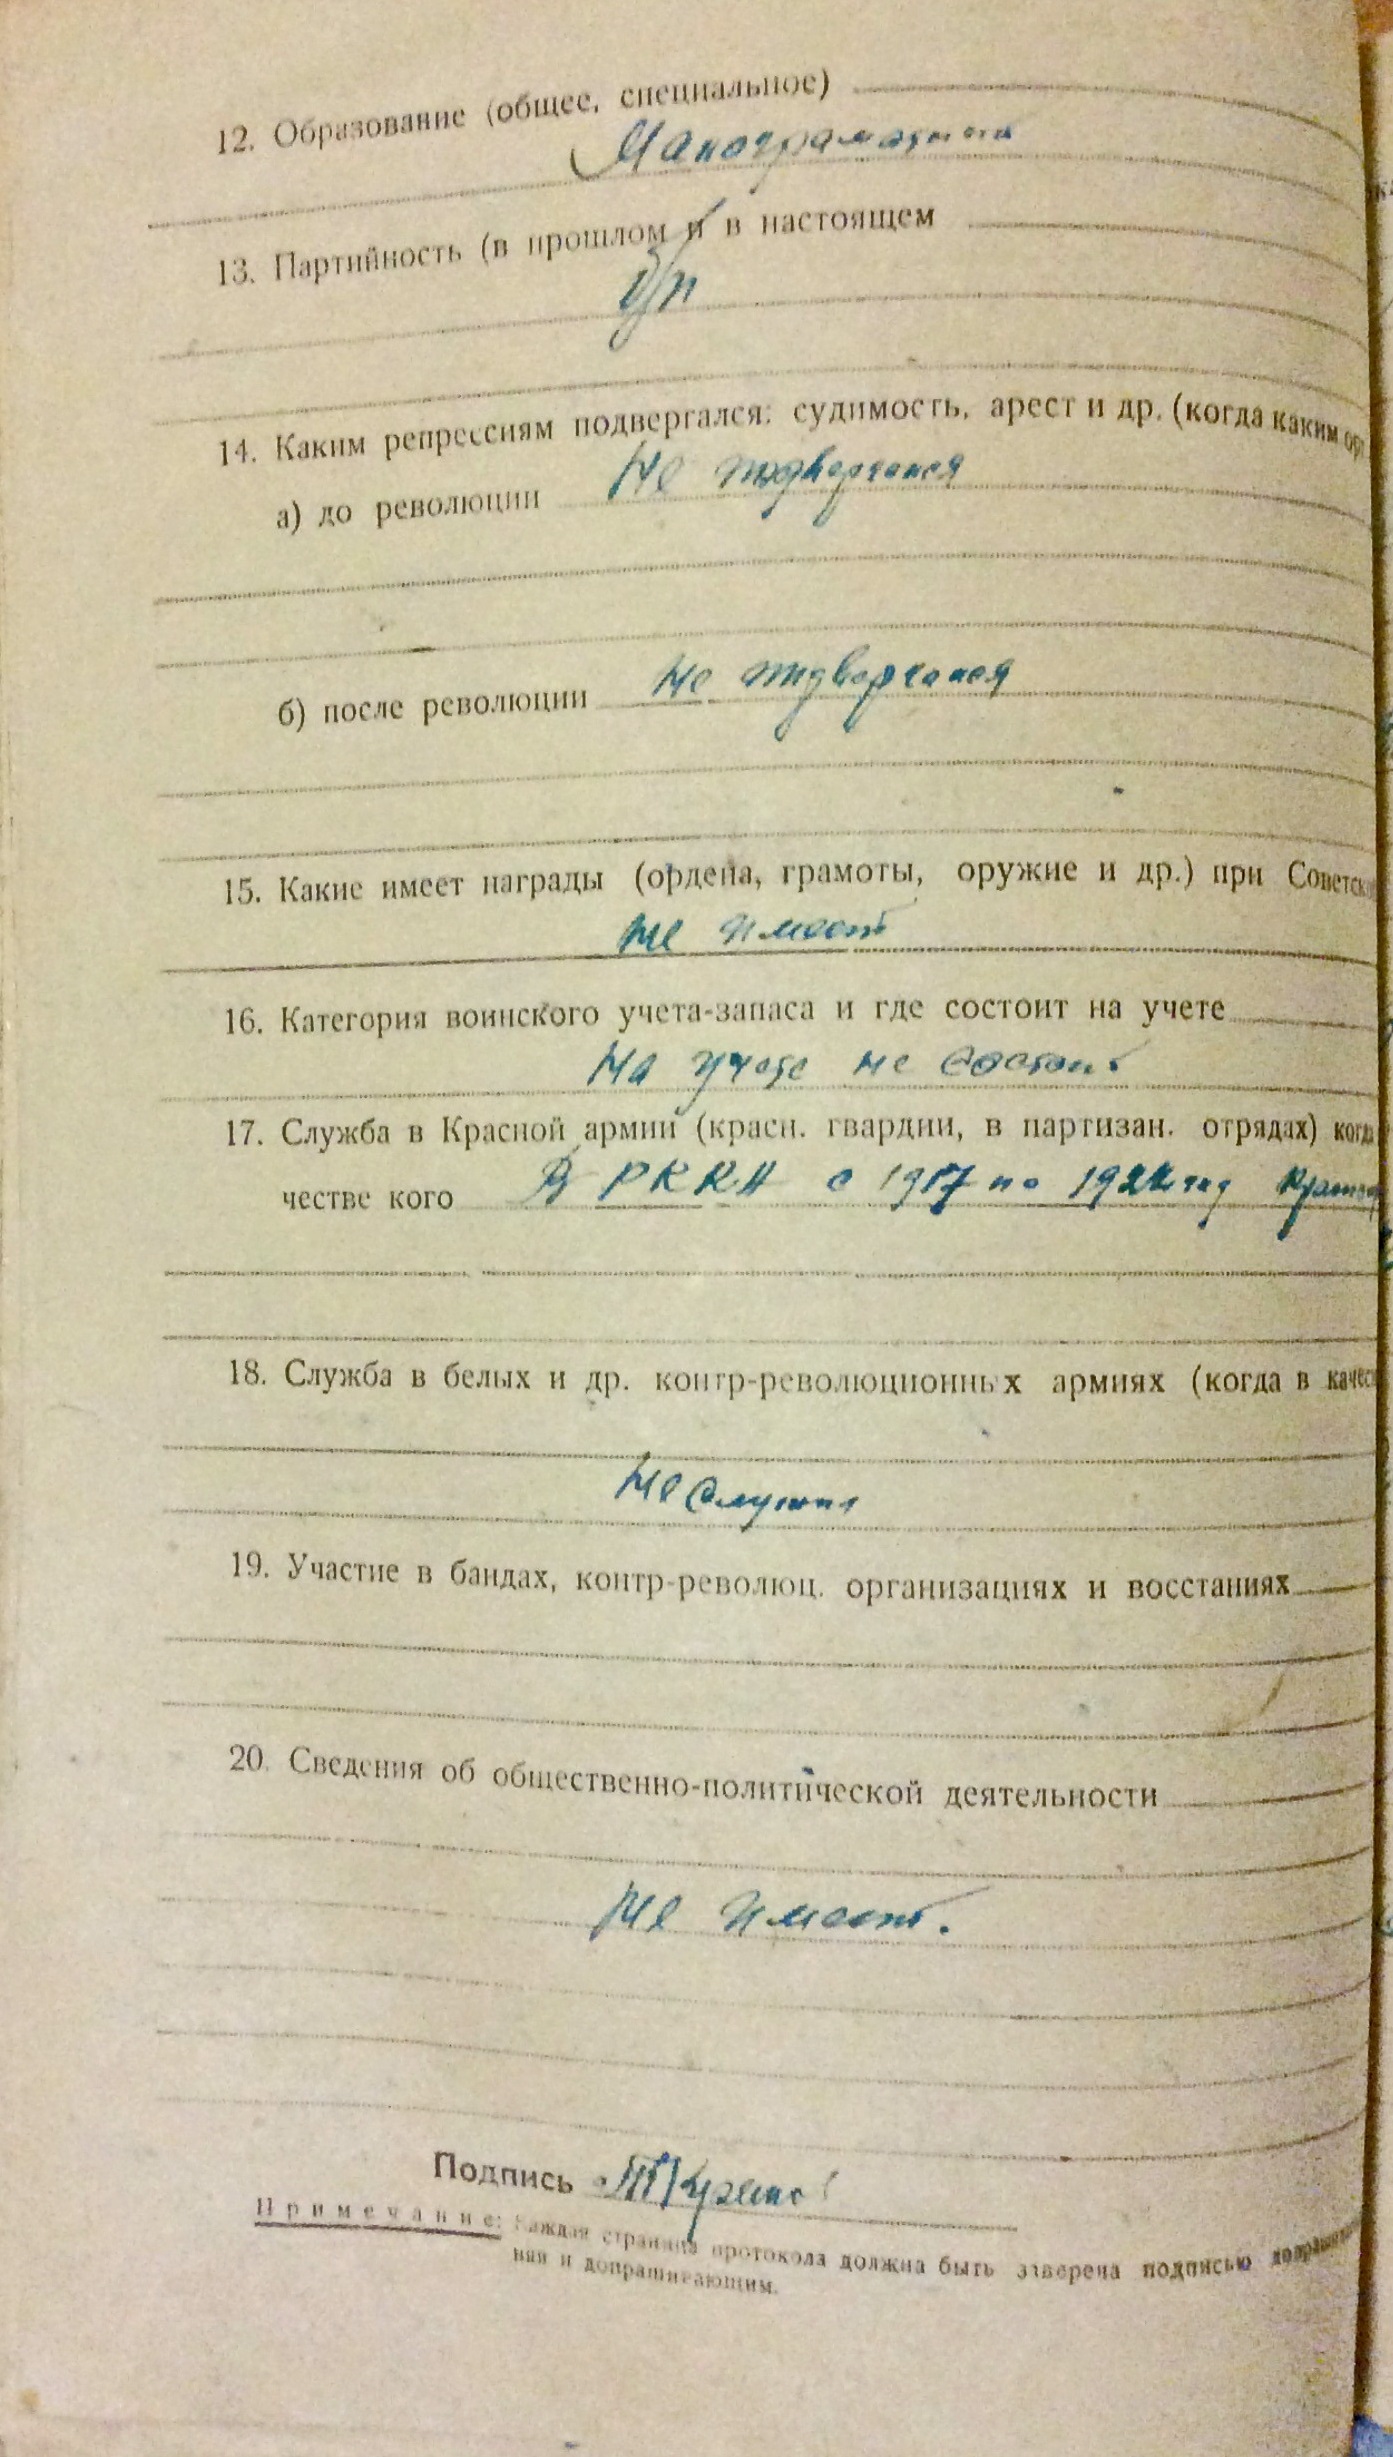 12. Образование (общее, специальное)
Малограмотный
13. Партийность (в прошлом и в настоящем
б/п
14. Каким репрессиям подвергался: судимость, арест и др. (когда каким орг
а) до революции Не подвергался
б) после революции Не подвергался
15. Какие имеет награды (ордена, грамоты, оружие и др.) при Советск
Не имеет
16. Категория воинского учета-запаса и где состоит на учете
На учете не состоит
17. Служба в Красной армии (красн. гвардии, в партизан. отрядах) когда
честве кого В РККА с 1917 по 1922 год
18. Служба в белых и др. контр-революционных армиях (когда в качес
Не служил
19. Участие в бандах, контр-революц. организациях и восстаниях
20. Сведения об общественно-политической деятельности
Не имеет.
Подпись
Примечание: Каждая страница протокола должна быть заверена подписью допрашивае
ния и допрашивающим.